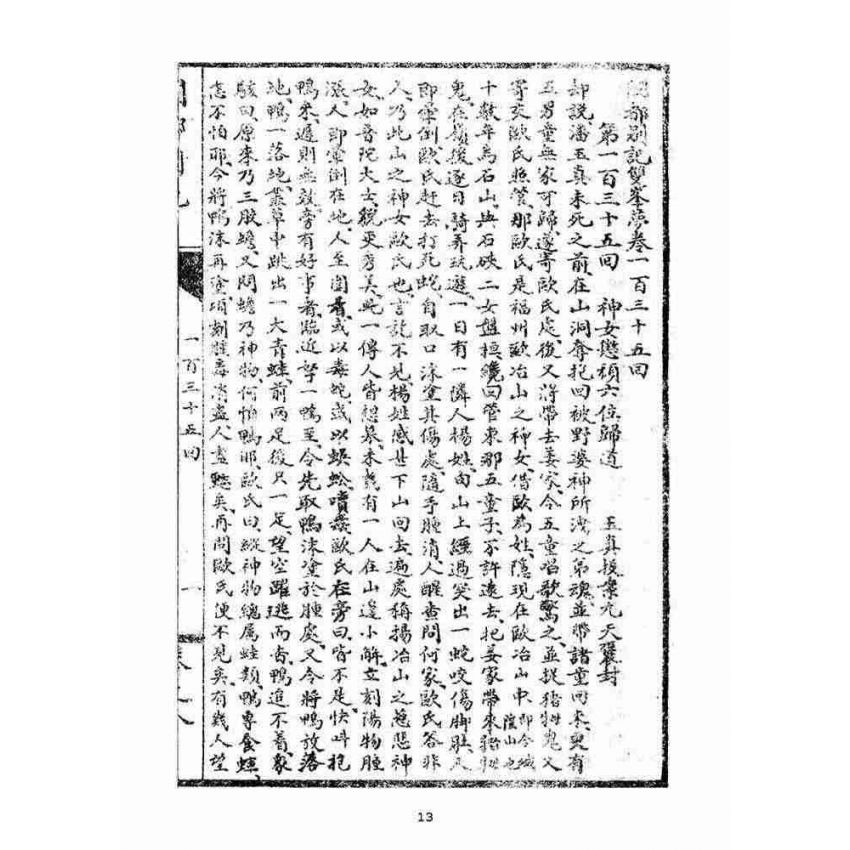 閩都別記雙峯夢卷一百三十五回
第一百三十五回 神女懲頑六位歸道 玉真援案九天襃封
却說潘玉真未死之前在山洞奪抱回被野婆神所洩之弟魂並帶諸童回來更有
五男童無家可歸遂寄歐氏處後又將帶去姜家令五童唱歌驚之並捉猪母鬼又
寄交歐氏照管那歐氏是福州歐冶山之神女借歐為姓隱現在歐冶山中即今城隍山也
十數年烏石山與石硤二女盤桓纔回管束那五童子不許遠去把姜家帶來猪母
鬼在嶺後逐日騎弄玩逛一日有一隣人楊姓向山上經過突出一蛇咬傷脚肚人
即暈倒歐氏赶去打死蛇自取口沫塗其傷處隨手腫消人醒查問何家歐氏答非
人乃此山之神女歐氏也言訖不見楊姓感甚下山回去遍處稱揚冶山之慈悲神
女如普陀大士貌更秀美此一傳人皆想慕未幾有一人在山邊小解立刻陽物腫
漲人即暈倒在地人至圍看或以毒蛇或以蜈蚣噴毒歐氏在旁曰皆不是快叫抱
鴨來遲則無效旁有好事者臨近孥一鴨至令先取鴨沫塗於腫處又令將鴨放落
地鴨一落地叢草中跳出一大青蛙前兩足後只一足望空躍逃而去鴨追不着衆
駭曰原來乃三脚蟾又問蟾乃神物何怕鴨耶歐氏曰縱神物總属蛙類鴨專食蛙
怎不怕耶今將鴨沫再塗頃刻腫毒消盡人盡駭矣再問歐氏便不見矣有幾人望
一百三十五回
一
13